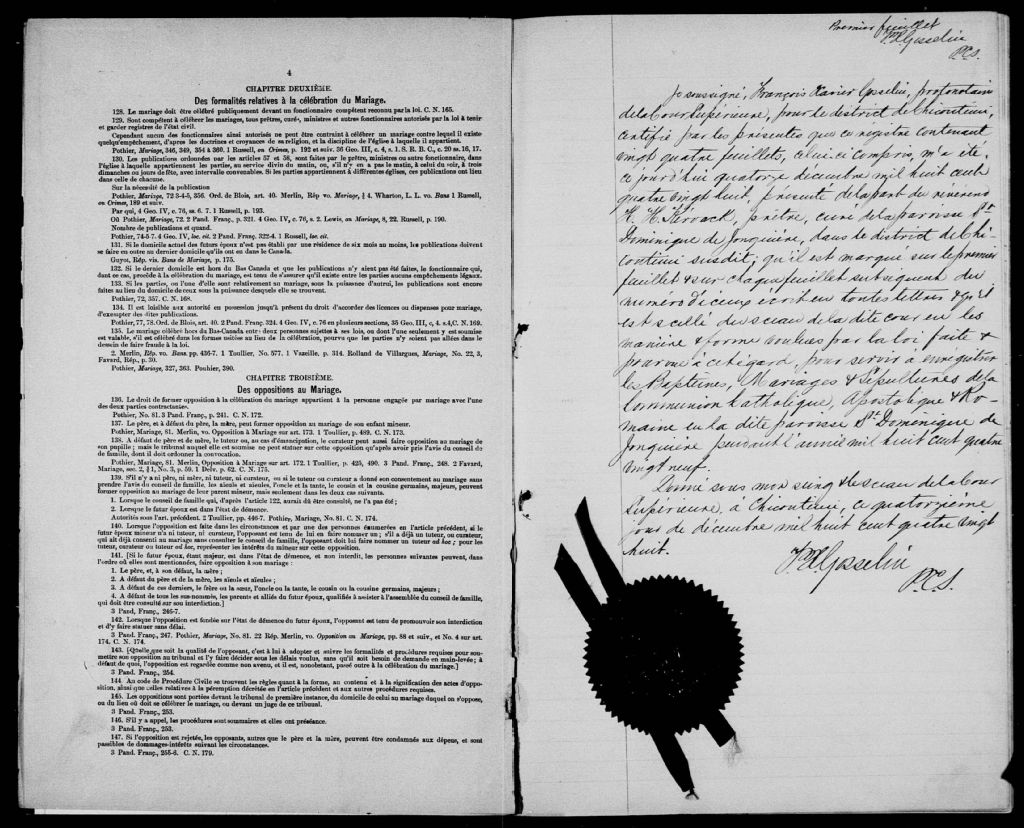 4
CHAPITRE DEUXIÈME.
Des formalités relatives à la célébration du Mariage.
128. Le mariage doit être célébré publiquement devant un fonctionnaire compétent reconnu par la loi. C. N. 165.
129. Sont compétents à célébrer les mariages, tous prêtres, curés, ministres et autres fonctionnaires autorisés par la loi à tenir
et garder registres de l'état civil.
Cependant aucun des fonctionnaires ainsi autorisés ne peut être contraint à célébrer un mariage contre lequel il existe
quelqu'empêchement, d'après les doctrines et croyances de sa religion, et la discipline de l'église à laquelle il appartient.
Pothier, Mariage, 346, 349, 354 à 360. 1 Russell, on Crimes, p. 192 et suiv. 36 Geo. III, c. 4, s. 1. S. R. B. C., c. 20 ss. 16, 17.
130. Les publications ordonnées par les articles 57 et 58, sont faites par le prêtre, ministre ou autre fonctionnaire, dans
l'église à laquelle appartiennent les parties, au service divin du matin, ou, s'il n'y en a pas le matin, à celui du soir, à trois
dimanches ou jours de fête, avec intervalle convenables. Si les parties appartiennent à différentes églises, ces publications ont lieu
dans celle de chacune.
Sur la nécessité de la publication
Pothier, Mariage, 72 3-4-5, 356. Ord. de Blois, art. 40. Merlin, Rép vo. Mariage, § 4. Wharton, L. L. vo. Bans 1 Russell,
on Crimes, 189 et suiv.
Par qui, 4 Geo. IV, c. 76, ss. 6. 7. 1 Russell, p. 193.
Où Pothier, Mariage, 72. 2 Pand. Franç., p. 321. 4 Geo. IV, c. 76, s. 2. Lewis, on Mariage, 8, 22, Russell, p. 190.
Nombre de publications et quand.
Pothier, 74-5 7. 4 Geo. IV, loc. cit. 2 Pand. Franç. 322-4. 1 Russell, loc. cit.
131. Si le domicile actuel des futurs époux n'est pas établi par une résidence de six mois au moins, les publications doivent
se faire en outre au dernier domicile qu'ils ont eu dans le Canada.
Guyot, Rép. vis. Bans de Mariage, p. 175.
132. Si le dernier domicile est hors du Bas Canada et que les publications n'y aient pas été faites, le fonctionnaire qui,
dans ce cas, procède à la célébration du mariage, est tenu de s'assurer qu'il existe entre les parties aucuns empêchements légaux.
133. Si les parties, ou l'une d'elle sont relativement au mariage, sous la puissance d'autrui, les publications sont encore
faites au lieu du domicile de ceux sous la puissance desquels elle se trouvent.
Pothier, 72, 357. C. N. 168.
134. Il est loisible aux autorité en possession jusqu'à présent du droit d'accorder des licences ou dispenses pour mariage,
d'exempter des dites publications.
Pothier, 77, 78. Ord. de Blois, art. 40. 2 Pand. Franç. 324. 4 Geo. IV, c. 76 en plusieurs sections, 35 Geo. III, c, 4. s.4, C. N. 169.
135. Le mariage célébré hors du Bas-Canada entre deux personnes sujettes à ses lois, ou dont l'une seulement y est soumise
est valable, s'il est célébré dans les formes usitées au lieu de la célébration, pourvu que les parties n'y soient pas allées dans le
dessein de faire fraude à la loi.
2. Merlin, Rép. vo. Bans pp. 436-7. 1 Toullier, No. 577. 1 Vazeille, p. 314. Rolland de Villargues, Mariage, No. 22, 3,
Favard, Rép., p. 30.
Pothier, Mariage, 327, 363. Pouhier, 390.
CHAPITRE TROISIÈME.
Des oppositions au Mariage.
136. Le droit de former opposition à la célébration du mariage appartient à la personne engagée par mariage avec l'une
des deux parties contractantes.
Pothier, No. 81. 3 Pand. Franç., p. 241. C. N. 172.
137. Le père, et à défaut du père, la mère, peut former opposition au mariage de son enfant mineur.
Pothier, Mariage, 81. Merlin, vo. Opposition à Mariage sur art. 173. 1 Toullier, p. 489. C. N. 173.
138. A défaut de père et de mère, le tuteur ou, au cas d'émancipation, le curateur peut aussi faire opposition au mariage de
son pupille ; mais le tribunal auquel elle est soumise ne peut statuer sur cette opposition qu'après avoir pris l'avis du conseil de
de famille, dont il doit ordonner la convocation.
Pothier, Mariage, 81. Merlin, Opposition à Mariage sur art. 172. 1 Toullier, p. 425, 490. 3 Pand. Franç., 248. 2 Favard,
Mariage, sec. 2, § 1, No. 3, p. 59. 1 Delv. p. 62. C. N. 175.
139. S'il n'y a ni père, ni mère, ni tuteur, ni curateur, ou si le tuteur ou curateur a donné son consentement au mariage sans
prendre l'avis du conseil de famille, les aïeuls et aïeules, l'oncle et la tante, le cousin et la cousine germains, majeurs, peuvent
former opposition au mariage de leur parent mineur, mais seulement dans les deux cas suivants.
1. Lorsque le conseil de famille qui, d'après l'article 122, aurait dû être consulté, ne l'a pas été ;
2. Lorsque le futur époux est dans l'état de démence.
Autorités sous l'art. précédent. 2 Toullier, pp. 446-7. Pothier, Mariage, No. 81. C. N. 174.
140. Lorsque l'opposition est faite dans les circonstances et par une des personnes énumérées en l'article précédent, si le
futur époux mineur n'a ni tuteur, ni curateur, l'opposant est tenu de lui en faire nommer un ; s'il a déjà un tuteur, ou curateur,
qui ait déjà consenti au mariage sans consulter le conseil de famille, l'opposant doit lui faire nommer un tuteur ad hoc ; pour les
tuteur, curateur ou tuteur ad hoc, représenter les intérêts du mineur sur cette opposition.
141. [Si le futur époux, étant majeur, est dans l'état de démence, et non interdit, les personnes suivantes peuvent, dans
l'ordre où elles sont mentionnées, faire opposition à son mariage :
1. Le père, et, à son défaut, la mère ;
2. A défaut du père et de la mère, les aïeuls et aïeules ;
3. A défaut de ces derniers, le frère ou la sœur, l'oncle ou la tante, le cousin ou la cousine germains, majeurs ;
4. A défaut de tous les sus-nommés, les parents et alliés du futur époux, qualifiés à assister à l'assemblée du conseil de famille,
qui doit être consulté sur son interdiction.]
3 Pand. Franç., 246-7.
142. Lorsque l'opposition est fondée sur l'état de démence du futur époux, l'opposant est tenu de promouvoir son interdiction
et d'y faire statuer sans délai.
3 Pand. Franç., 247. Pothier, Mariage, No. 81. 22 Rép. Merlin, vo. Opposition au Mariage, pp. 88 et suiv., et No. 4 sur art.
174. C. N. 174.
143. [Quelle que soit la qualité de l'opposant, c'est à lui à adopter et suivre les formalités et procédures requises pour sou-
mettre son opposition au tribunal et l'y faire décider sous les délais voulus, sans qu'il soit besoin de demande en main-levée ; à
défaut de quoi, l'opposition est regardée comme non avenu, et il est, nonobstant, passé outre à la célébration du mariage.]
3 Pand. Franç., 254.
144. Au code de Procédure Civile se trouvent les règles quant à la forme, au contenu et à la signification des actes d'oppo-
sition, ainsi que celles relatives à la péremption décrétée en l'article précédent et aux autres procédures requises.
145. Les oppositions sont portées devant le tribunal de première instance, du domicile de celui au mariage duquel on s'oppose,
ou du lieu où doit se célébrer le mariage, ou devant un juge de ce tribunal.
3 Pand. Franç., 253.
146. S'il y a appel, les procédures sont sommaires et elles ont préséance.
3 Pand. Franç., 253.
147. Si l'opposition est rejetée, les opposants, autres que le père et la mère, peuvent être condamnés aux dépens, et sont
passibles de dommages-intérêts suivant les circonstances.
3 Pand. Franç., 255-6. C. N. 179.
Premier feuillet
FXGosselin
P.C.S.
Je soussigné, François Xavier Gosselin, protonotaire
de la Cour Supérieure, pour le district de Chicoutimi,
certifie par les présentes que ce registre contenant
vingt quatre feuillets, celui-ci compris, m'a été,
ce jourd'hui quatorze décembre mil huit cent
quatre vingt huit, présenté de la part du révérend
H. K. Kéroack, prêtre, curé de la paroisse St
Dominique de Jonquière, dans le district de Chi-
coutimi susdit ; qu'il est marqué sur le premier
feuillet & sur chaque feuillet subséquent du
numéro d'iceux écrit en toutes lettres & qu'il
est scellé du sceau de la dite cour en la
manière & forme voulues par la loi faite &
pourvue à cet égard, pour servir à enregistrer
les Baptêmes, Mariages & Sépultures de la
Communion Catholique, Apostolique & Ro-
maine en la dite paroisse St Dominique de
Jonquière pendant l'année mil huit cent quatre
vingt neuf.
Donné sous mon seing & le sceau de la Cour
Supérieure, à Chicoutimi, ce quatorzième
jour de décembre mil huit cent quatre vingt
huit.
FXGosselin
P.C.S.